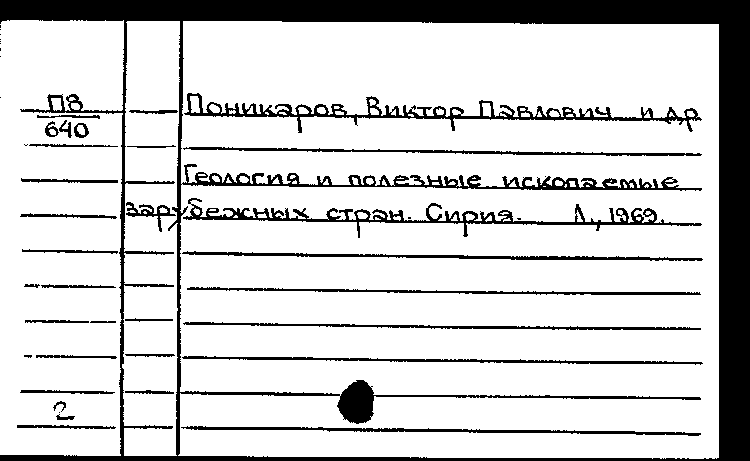 ПЗ
640
Поникаров, Виктор Павлович и др
Геология и полезные ископаемые
зарубежных стран. Сирия. Л., 1969.
2